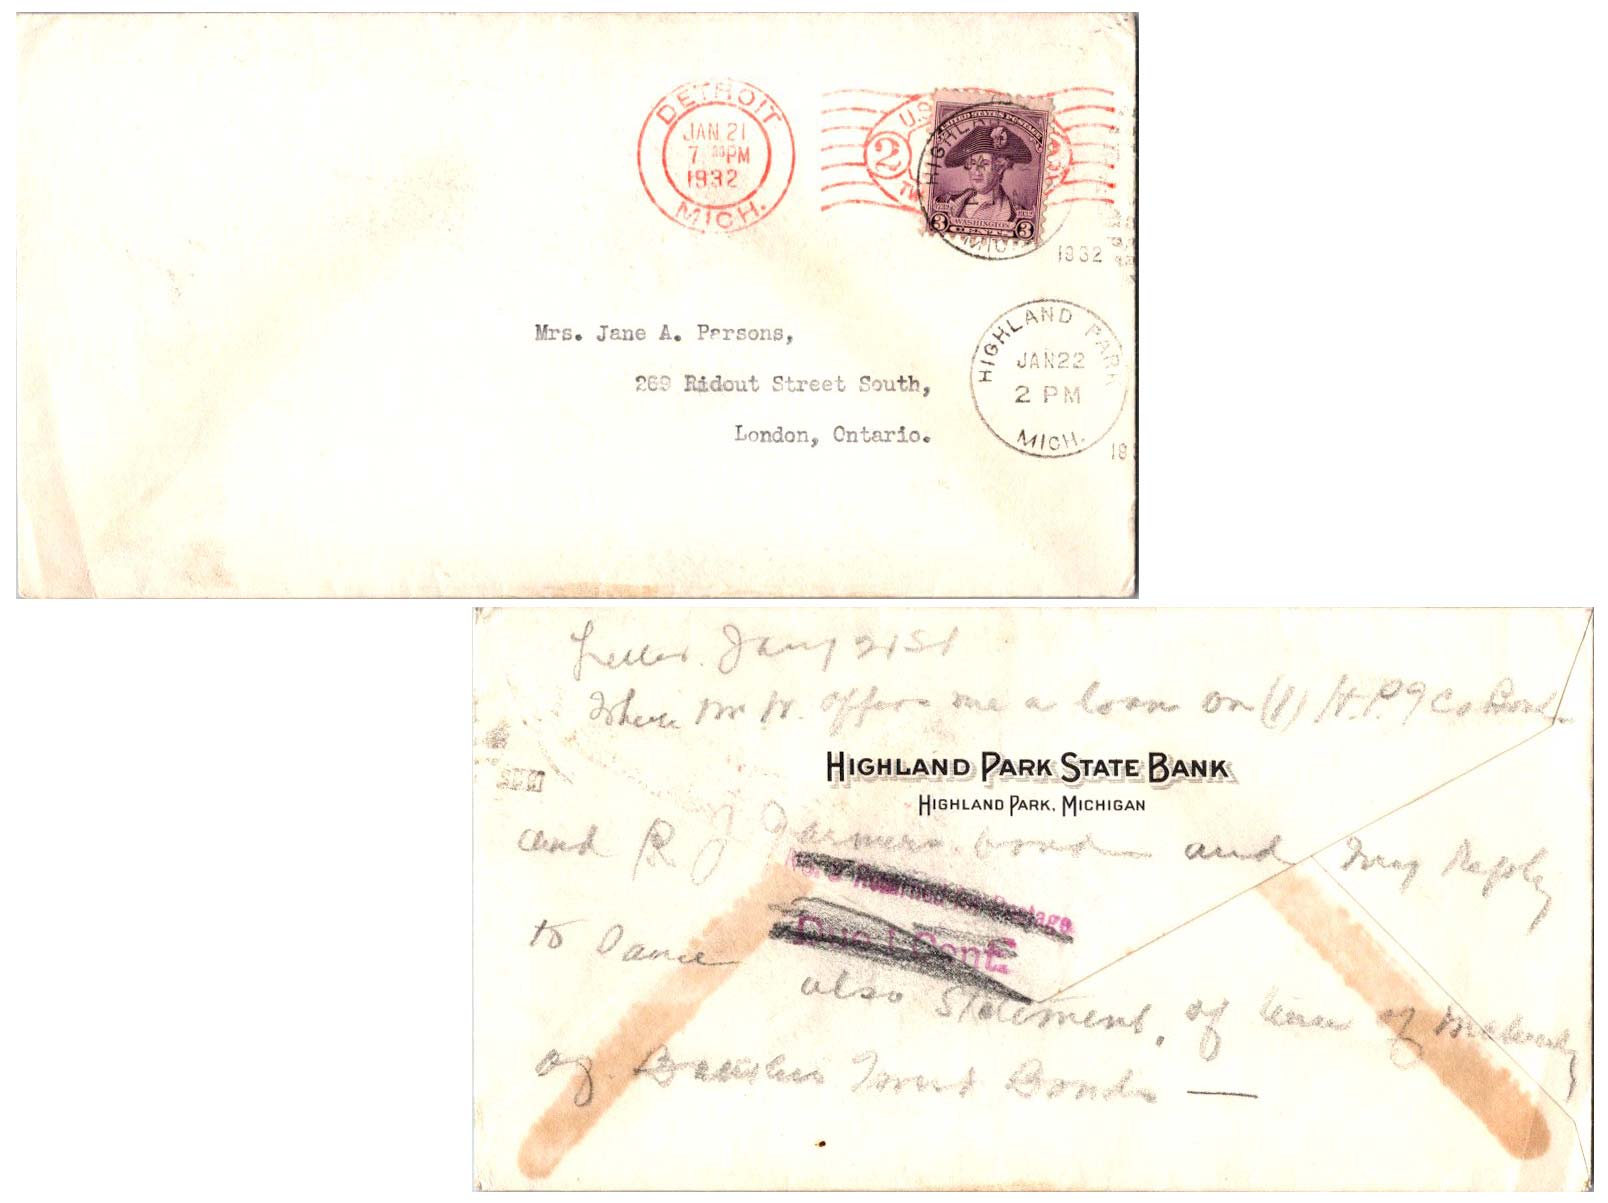 DETROIT
JAN 21
7 30 PM
1932
MICH.
U.S.
2
2
UNITED STATES POSTAGE
HIGHLAND
3 WASHINGTON 3
CENTS
MICH
1932
Mrs. Jane A. Parsons,
269 Ridout Street South,
London, Ontario.
HIGHLAND PARK
JAN 22
2 PM
MICH.
19
Letter. Jany 21st
Where Mr W. offers me a loan on (1) H.P. Co Bond
5 PM
HIGHLAND PARK STATE BANK
HIGHLAND PARK, MICHIGAN
and R J Farmers bonds and my Reply
Returned for Postage
Due 1 Cent
to Same
also Statement, of time of Maturity
of Bankers Trust Bonds —